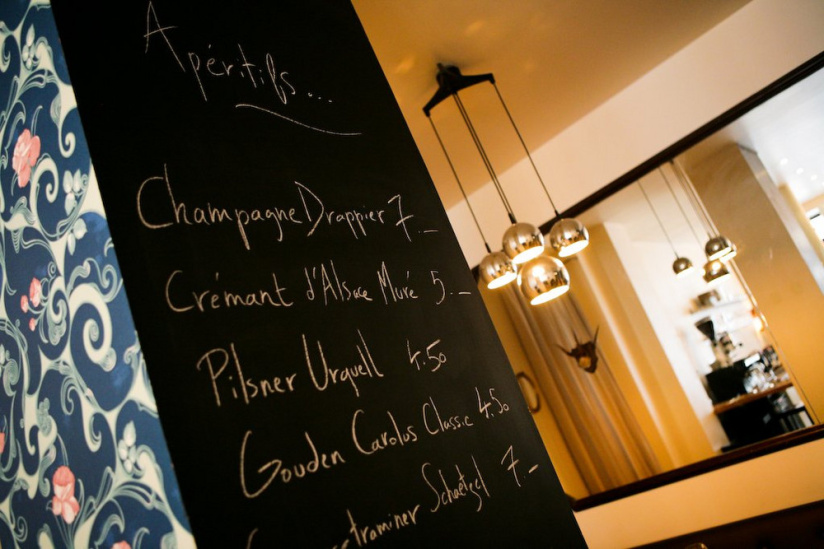 Apéritifs...
Champagne Drappier 7.-
Crémant d'Alsace Muré 5.-
Pilsner Urquell 4.50
Gouden Carolus Classic 4.50
Schaetzel 7.-